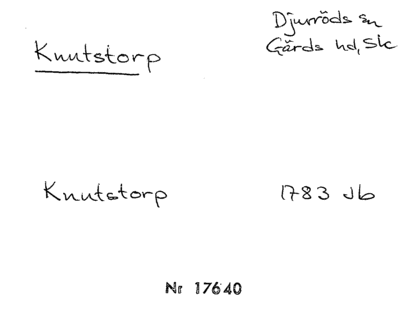 Knutstorp
Djurröds sn
Gärds hd, Sk
Knutstorp
1783 Jb
Nr 17640